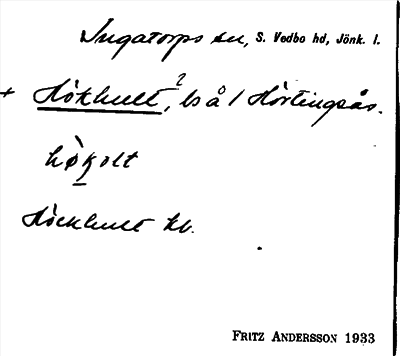 Ingatorps sn, S. Vedbo hd, Jönk. l.
+ Hökhult?, ls å / Hörtingsås.
hø̀kolt
Höckhult kb.
FRITZ ANDERSSON 1933